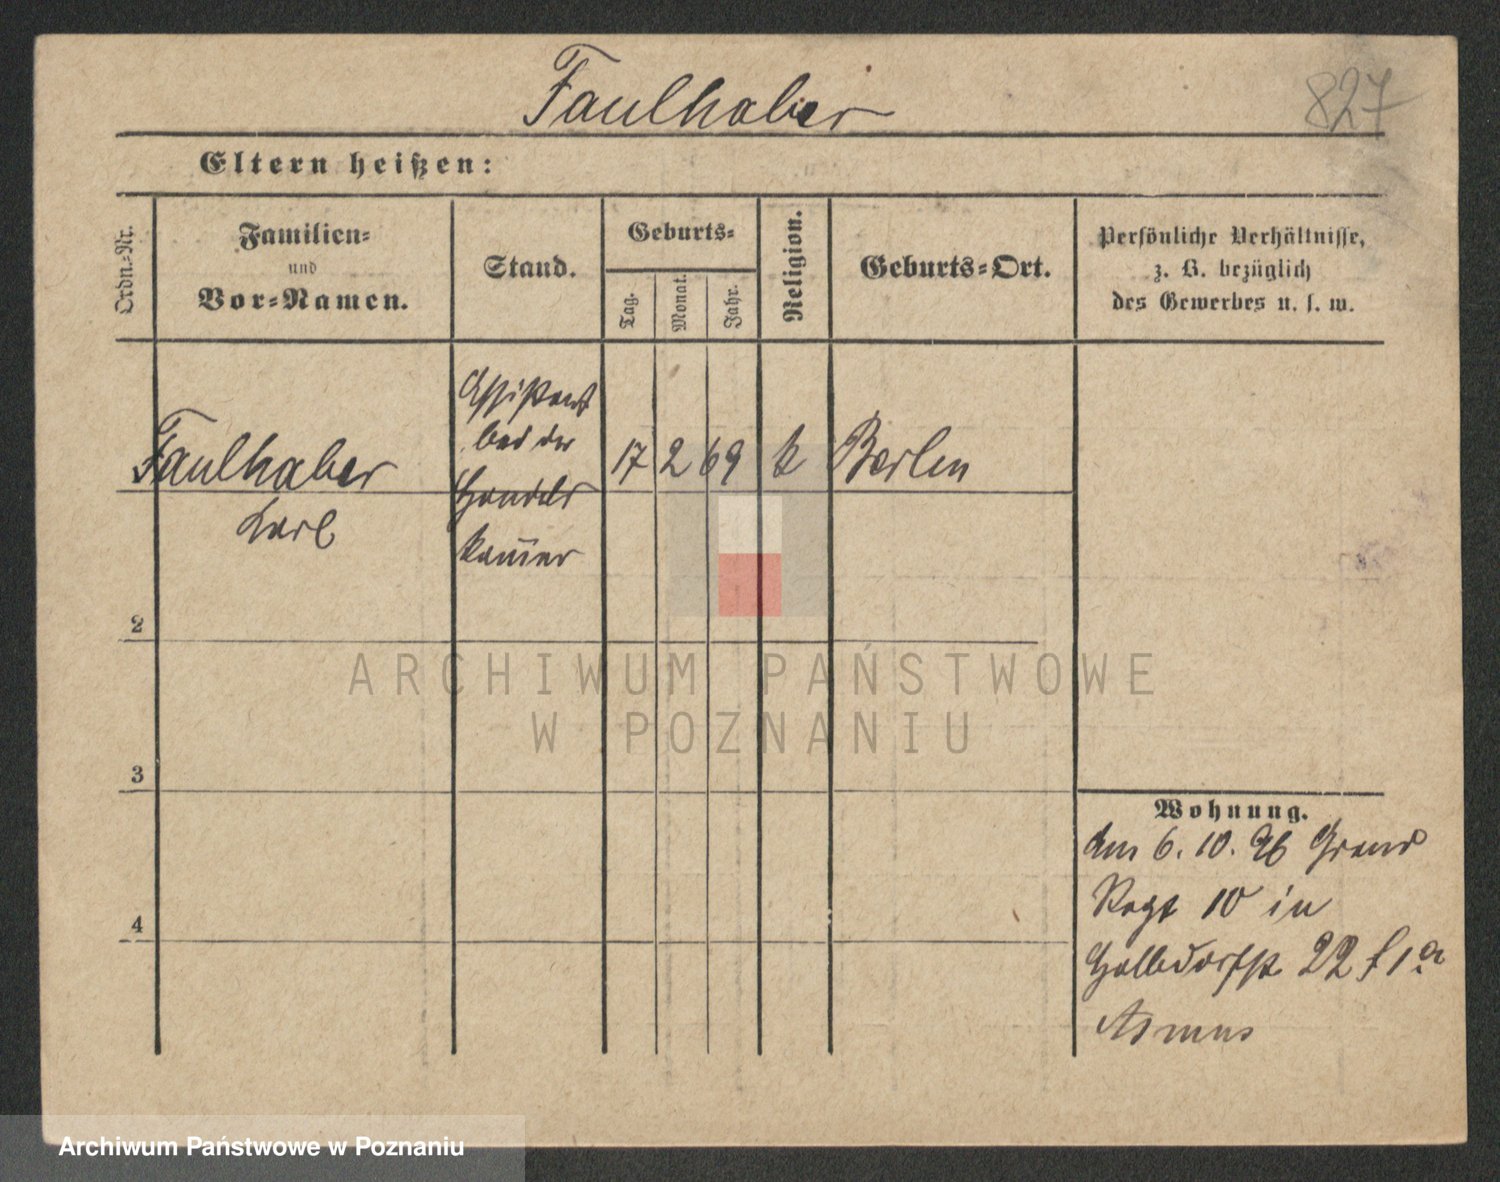 Faulhaber
827
Eltern heißen:
Ordn.-Nr.
Familien-
und
Vor-Namen.
Stand.
Geburts-
Tag.
Monat.
Jahr.
Religion.
Geburts-Ort.
Persönliche Verhältnisse,
z. B. bezüglich
des Gewerbes u. s. w.
Faulhaber
Karl
Assistent
bei der
Handels
kam̄er
17 2 69 k Berlin
2
3
4
Wohnung.
Am 6. 10. 96
Regt 10 in
Halbdorfst 22
Asmus
ARCHIWUM PAŃSTWOWE
W POZNANIU
Archiwum Państwowe w Poznaniu